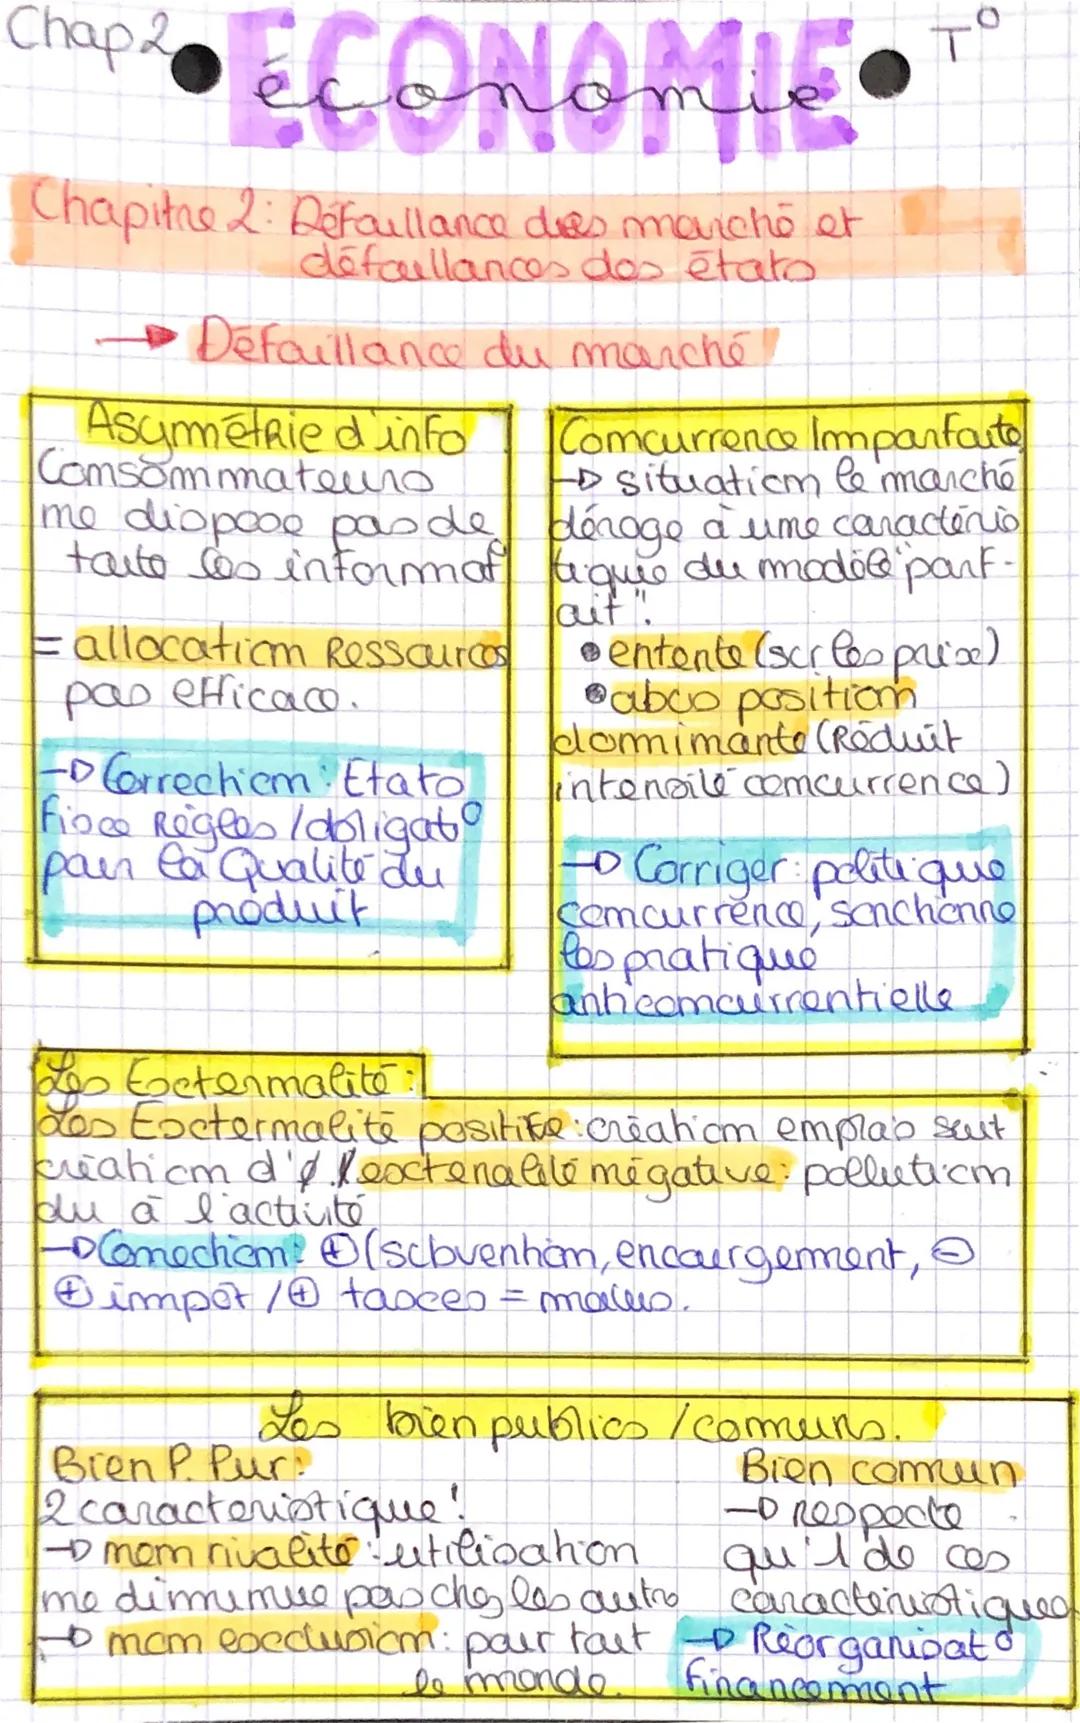 Chap 2
T°
ECONOMIE
économie
Chapitre 2: Défaillance des marché et
défaillances des états
→ Défaillance du marché
Asymétrie d'info
Consommateurs
ne dispose pas de
toute les informat°
= allocation Ressources
pas efficace.
→ Correction : Etats
fixe Règles / obligat°
par la Qualité du
produit
Concurrence Imparfaite
→ situation le marché
déroge à une caractéris
tiques du modèle "parf-
ait".
• entente (sur les prix)
• abus position
donminante (Réduit
intensité concurrence)
→ Corriger : politique
concurrence, sanctionne
les pratique
anticoncurrentielle
Les Externalité :
Les Externalité positive : création emplois suit
création d'∅. l'extenalité négative : pollution
du à l'activité
→ Correction : ⊕ (subvention, encourgement, ⊖
⊕ impôt / ⊕ taxes = malus.
Les bien publics / comuns.
Bien P. Pur :
2 caracteristique :
→ non rivalité : utilisation
ne dinimue pas chez les autre
→ non exclusion : pour tout
le monde.
Bien commun
→ respecte
qu'1 de ces
caractéristiques
→ Réorganisat°
financement